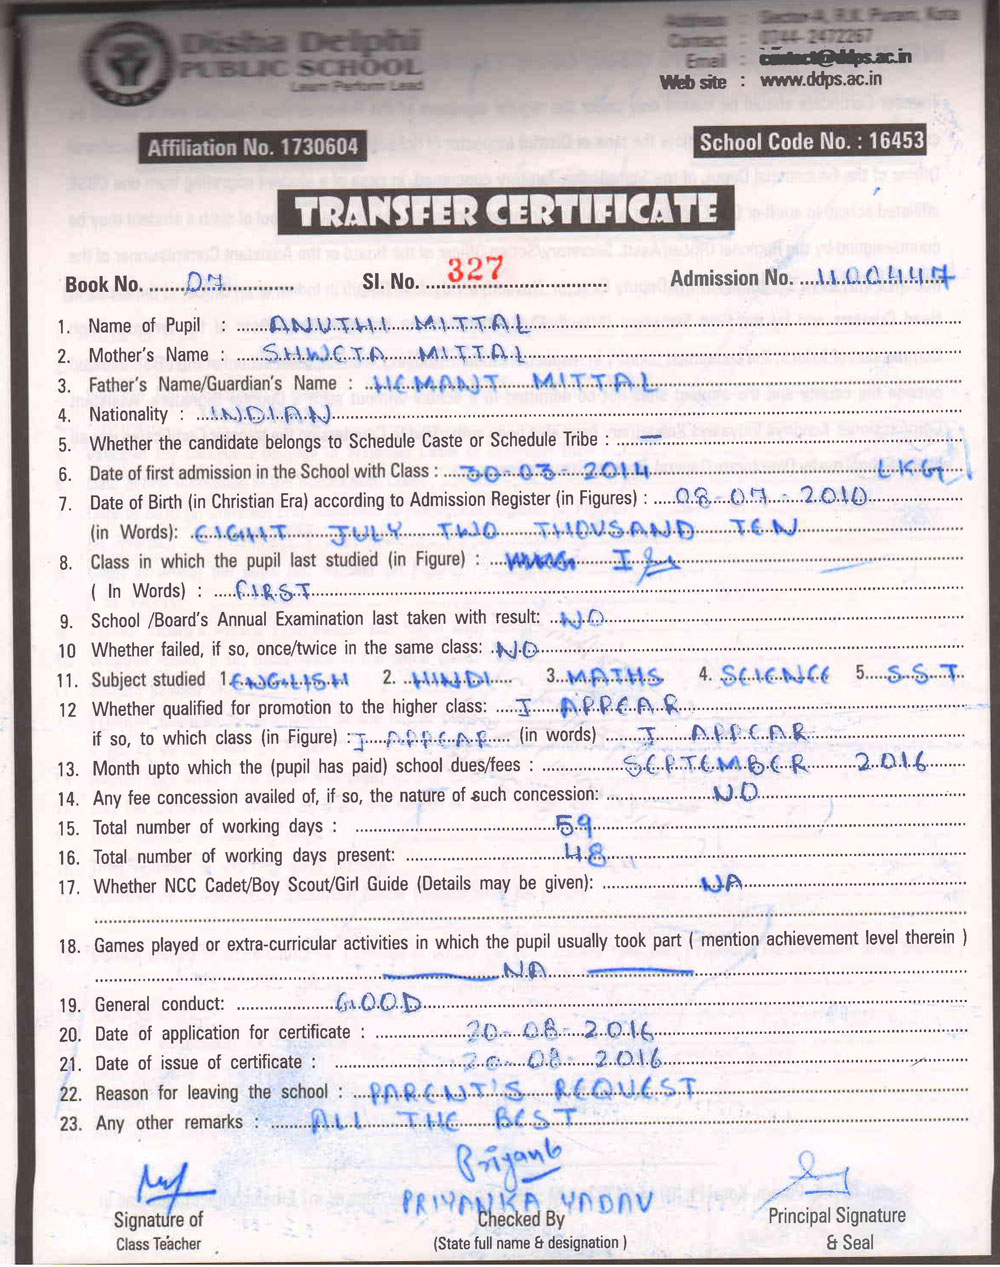 Disha Delphi
PUBLIC SCHOOL
Learn Perform Lead
Address : Sector-A, R.K. Puram, Kota
Contact : 0744- 2472267
Email : contact@ddps.ac.in
Web site : www.ddps.ac.in
Affiliation No. 1730604
School Code No. : 16453
TRANSFER CERTIFICATE
Book No. 07 Sl. No. 327 Admission No. 1100447
1. Name of Pupil : ANUTHI MITTAL
2. Mother's Name : SHWETA MITTAL
3. Father's Name/Guardian's Name : HEMANT MITTAL
4. Nationality : INDIAN
5. Whether the candidate belongs to Schedule Caste or Schedule Tribe : —
6. Date of first admission in the School with Class : 30-03-2014 LKG
7. Date of Birth (in Christian Era) according to Admission Register (in Figures) : 08-07-2010
(in Words): EIGHT JULY TWO THOUSAND TEN
8. Class in which the pupil last studied (in Figure) : I
( In Words) : FIRST
9. School /Board's Annual Examination last taken with result: NO
10 Whether failed, if so, once/twice in the same class: NO
11. Subject studied 1. ENGLISH 2. HINDI 3. MATHS 4. SCIENCE 5. S.S.T
12 Whether qualified for promotion to the higher class: I APPEAR
if so, to which class (in Figure) : I APPEAR (in words) I APPEAR
13. Month upto which the (pupil has paid) school dues/fees : SEPTEMBER 2016
14. Any fee concession availed of, if so, the nature of such concession: NO
15. Total number of working days : 59
16. Total number of working days present: 48
17. Whether NCC Cadet/Boy Scout/Girl Guide (Details may be given): NA
18. Games played or extra-curricular activities in which the pupil usually took part ( mention achievement level therein )
NA
19. General conduct: GOOD
20. Date of application for certificate : 20-08-2016
21. Date of issue of certificate : 20-08-2016
22. Reason for leaving the school : PARENT'S REQUEST
23. Any other remarks : ALL THE BEST
PRIYANKA YADAV
Signature of
Class Teacher
Checked By
(State full name & designation )
Principal Signature
& Seal